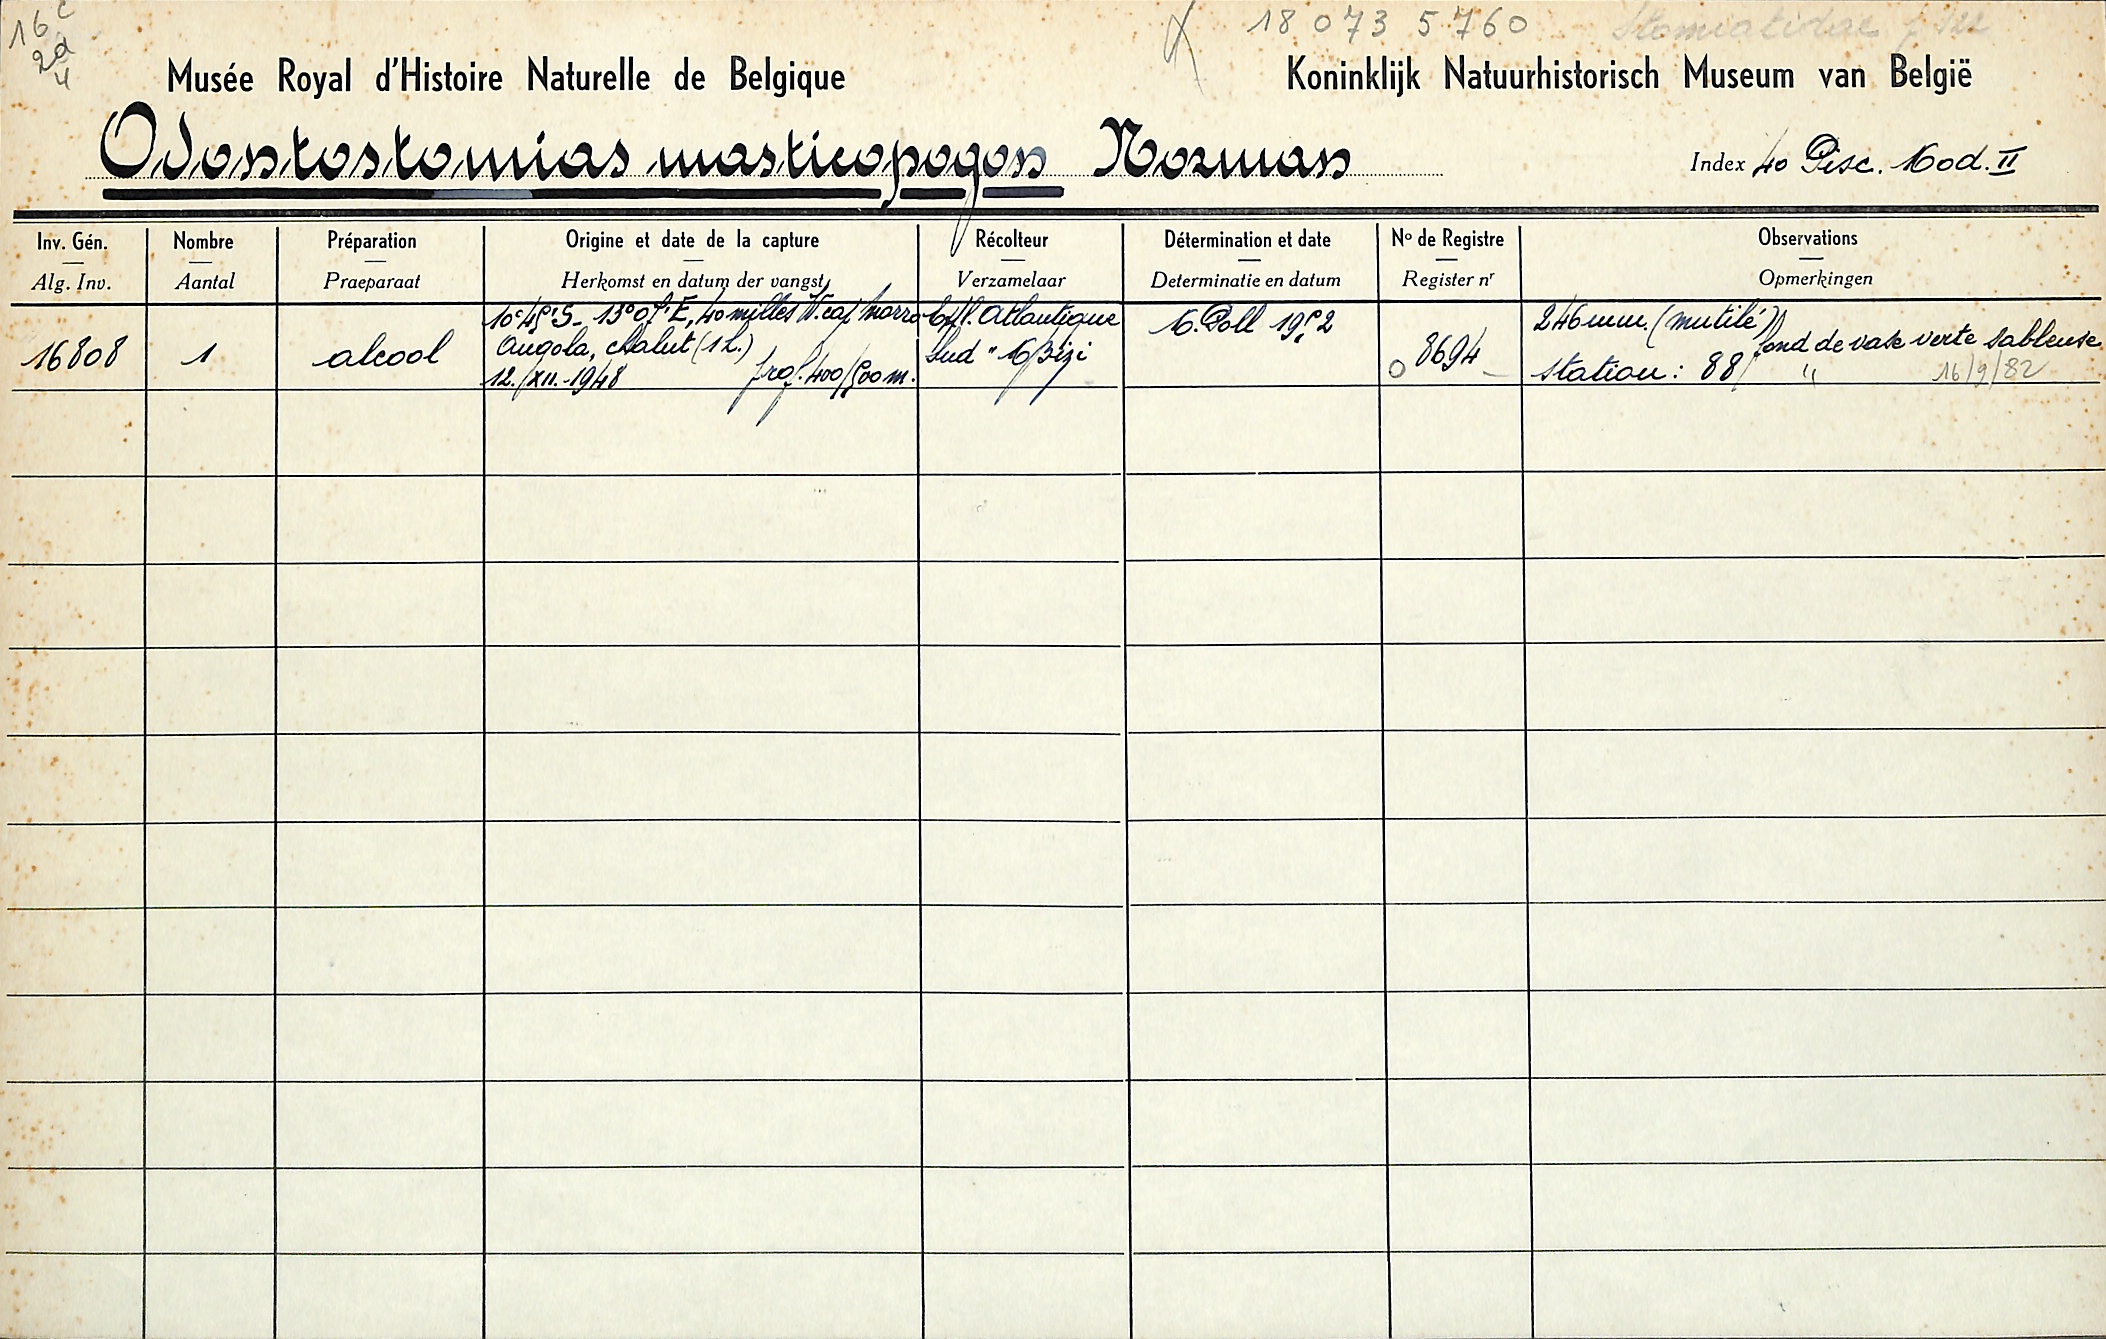 16c
2d
4
18 073 5760
Stomiatidae
Musée Royal d'Histoire Naturelle de Belgique
Koninklijk Natuurhistorisch Museum van België
Odontostomias masticopogon Norman
Index 40 Pisc. Mod. II
Inv. Gén. Nombre Préparation Origine et date de la capture Récolteur Détermination et date No de Registre Observations
Alg. Inv. Aantal Praeparaat Herkomst en datum der vangst Verzamelaar Determinatie en datum Register nr Opmerkingen
16808
1
alcool
10°45'S - 13°05'E, 40 milles W. cap Morro
Angola, chalut (1 h.)
12.XII.1948 prof. 400/500 m.
Atlantique
Sud "Mbizi
M. Poll 1952
8694
246 mm. (mutilé)
fond de vase verte sableuse
station: 88
16/9/82